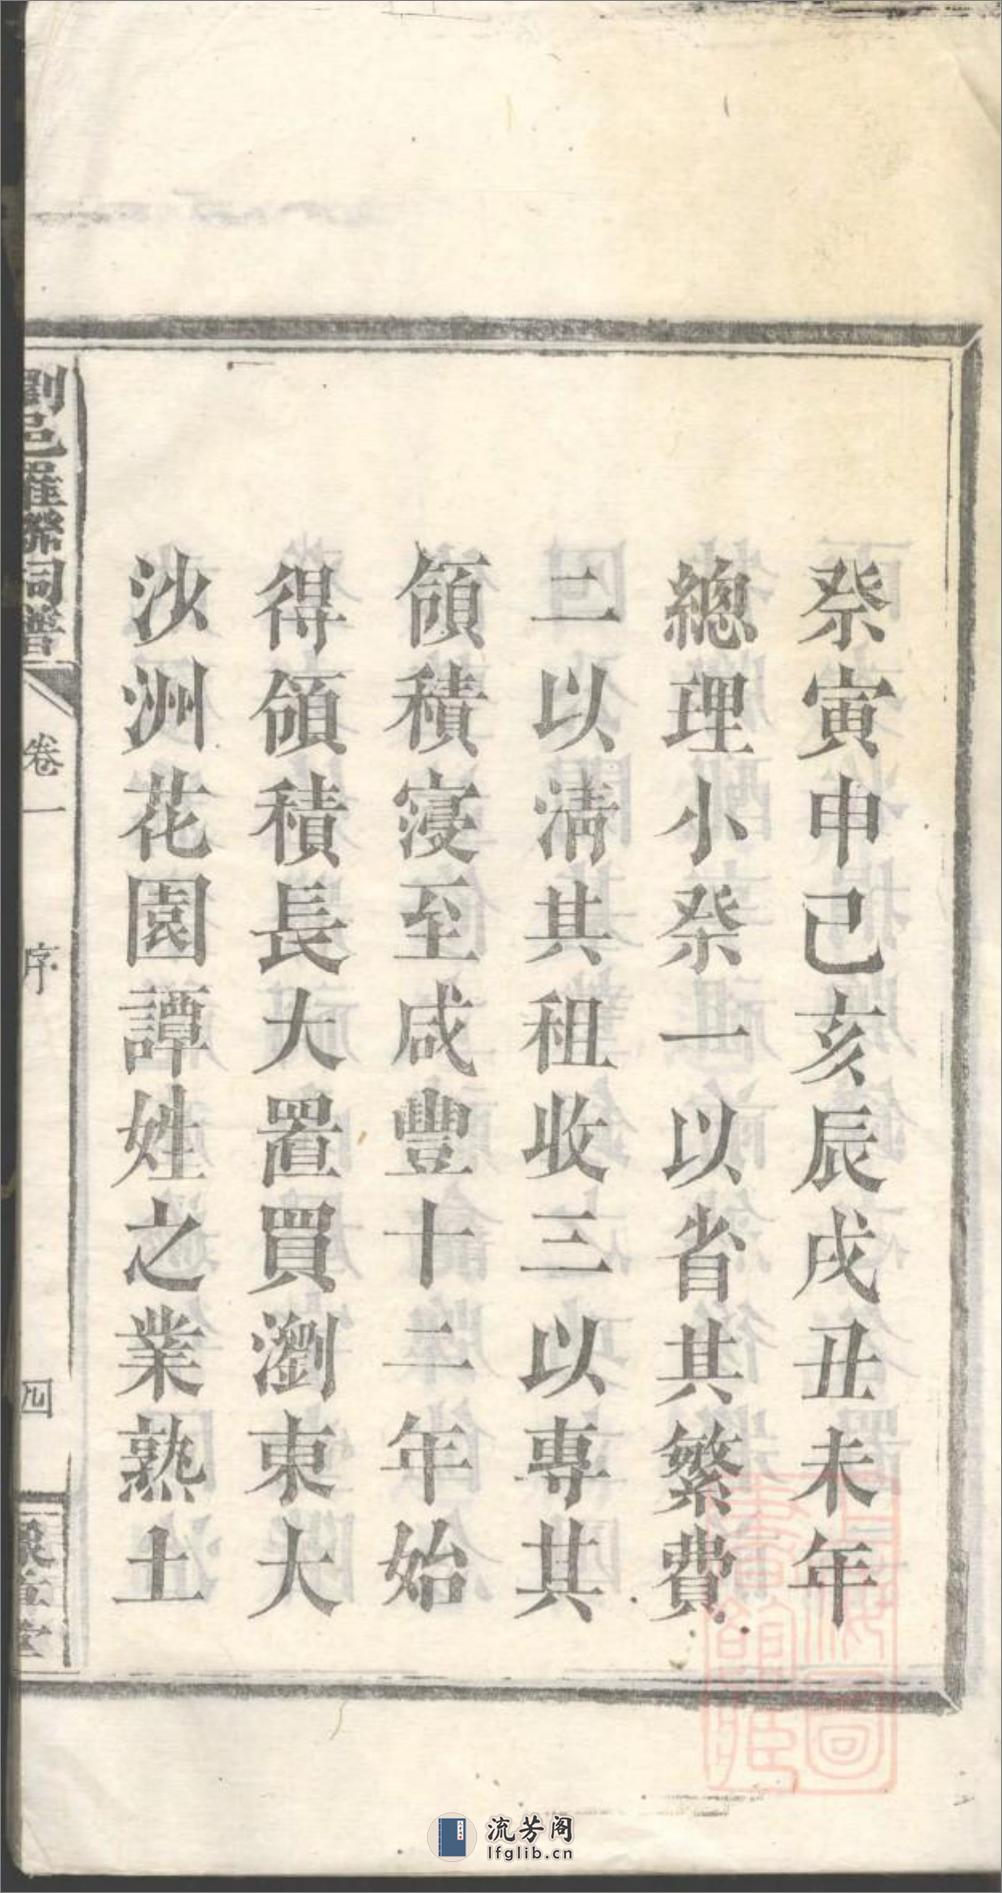 祭寅申己亥辰戌丑未年
總理小祭一以省其繁費
二以清其租收三以專其
領積寖至咸豐十二年始
得領積長大置買瀏東大
沙洲花園譚姓之業熟土
劉邑羅聯祠譜
卷一
序
四
上海圖書館藏
流芳阁
lfglib.cn